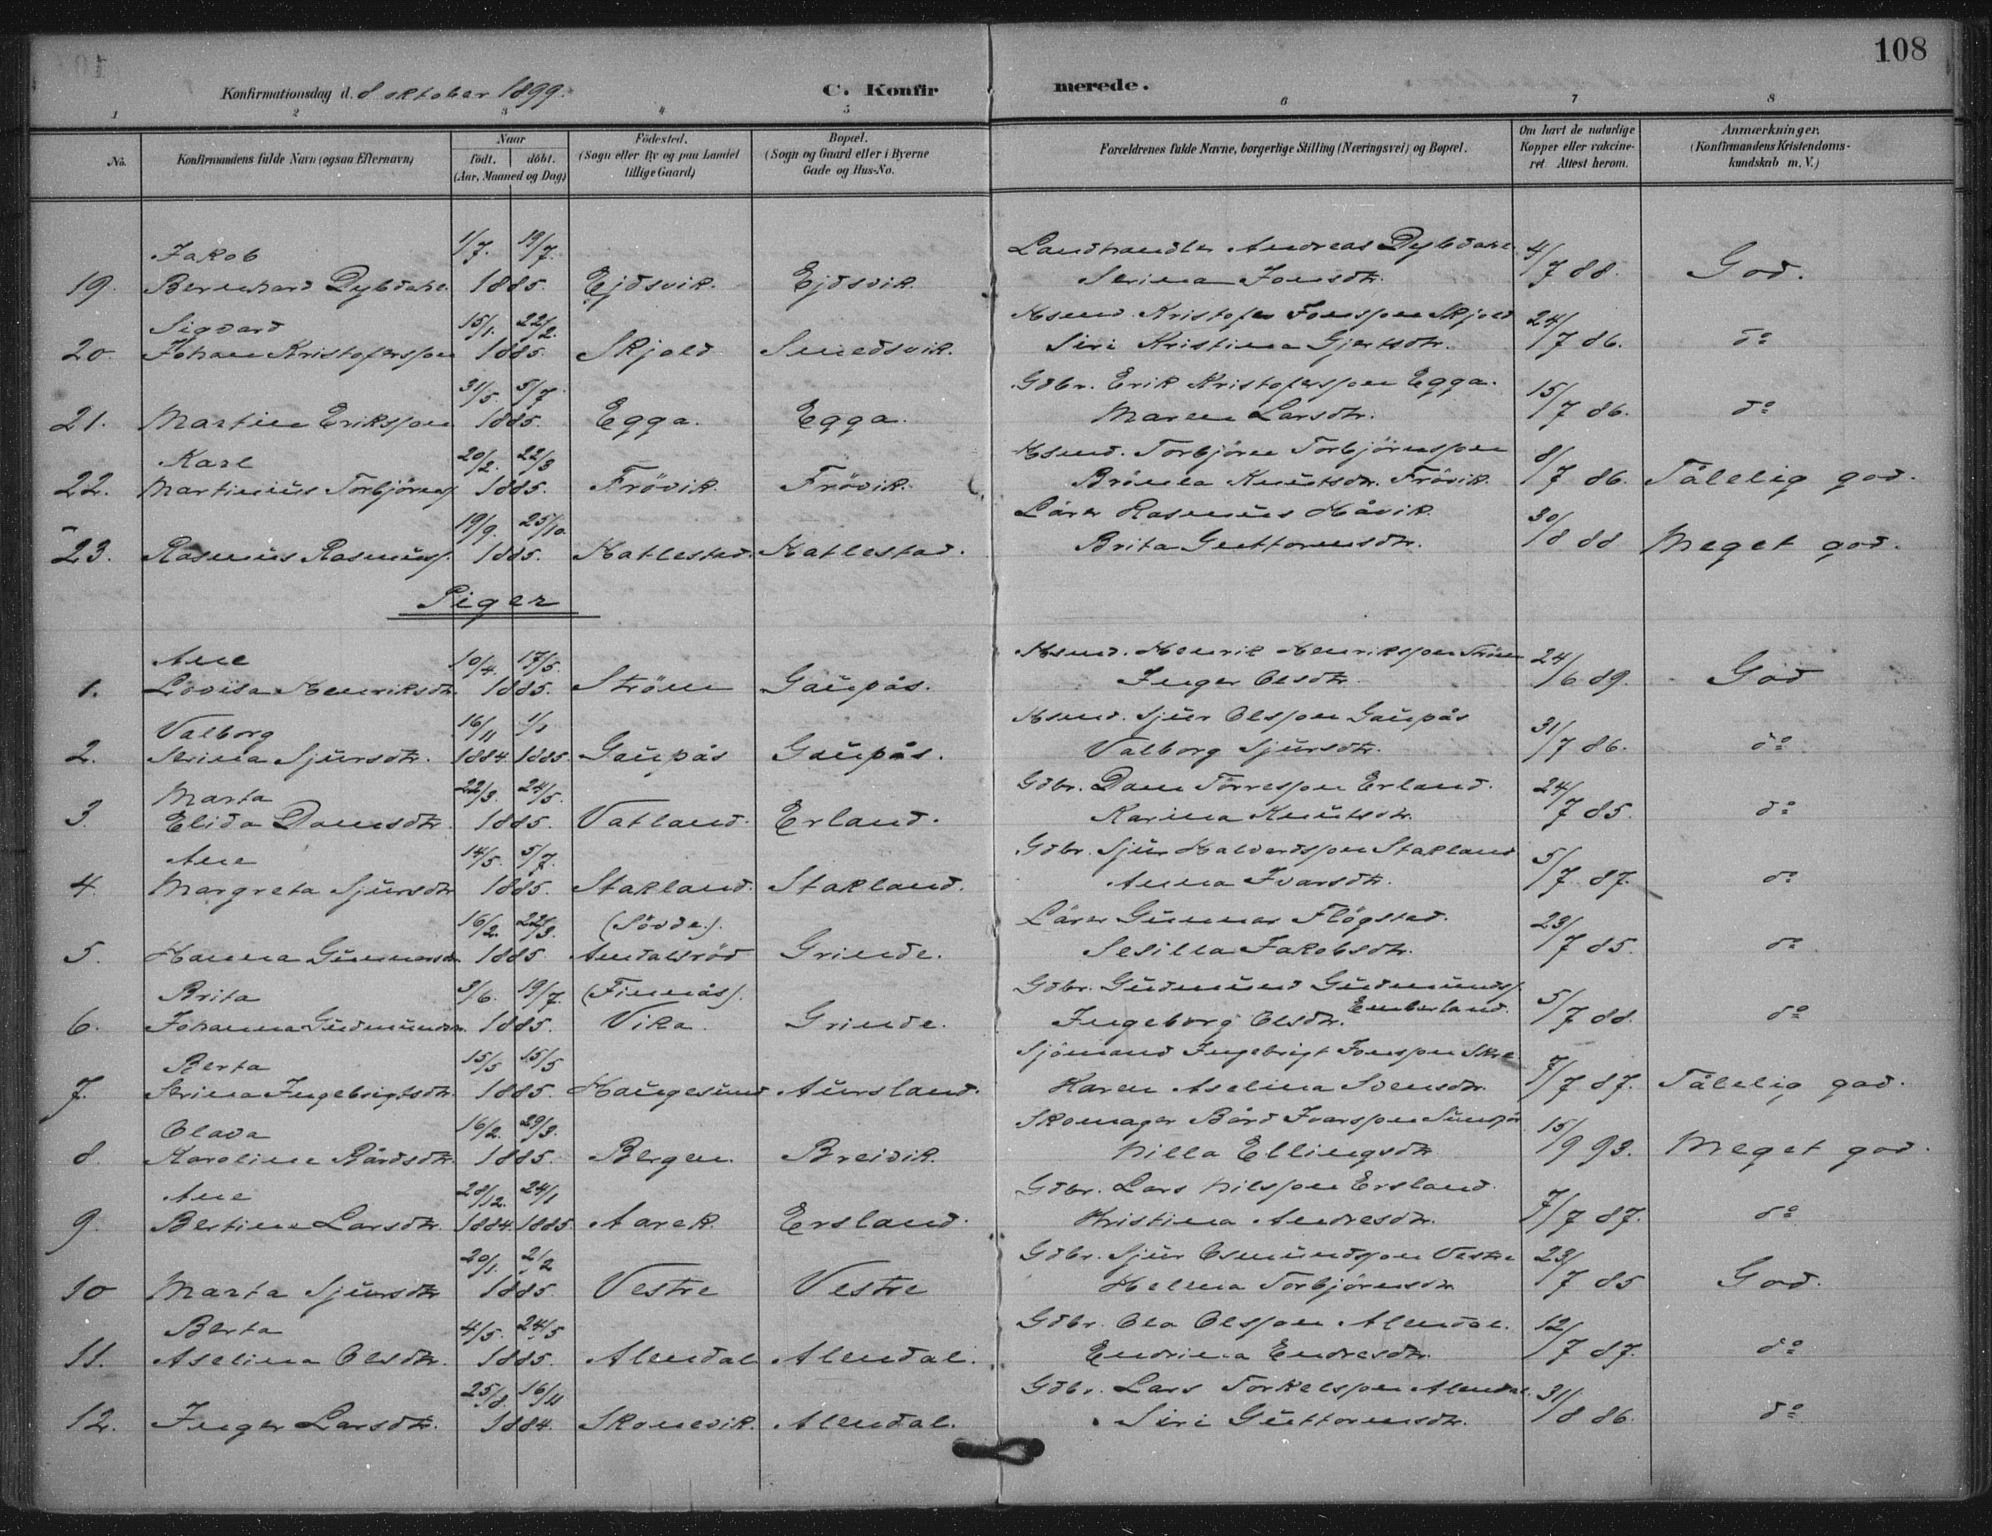 108
Konfirmationsdag d. 8 oktober 1899.
C. Konfirmerede.
1 2 3 4 5 6 7 8
No. Konfirmandens fulde Navn (ogsaa Efternavn)
Naar født. døbt. (Aar, Maaned og Dag)
Fødested. (Sogn eller By og paa Landet tillige Gaard)
Bopæl. (Sogn og Gaard eller i Byerne Gade og Hus-No.
Forældrenes fulde Navne, borgerlige Stilling (Næringsvei) og Bopæl.
Om havt de naturlige Kopper eller vakcineret. Attest herom.
Anmærkninger. (Konfirmandens Kristendomskundskab m. V.)
Jakob 1/7. 19/7. Landhandler Andreas Dybdahl 4/7 88.
19. Bernhard Dybdahl. 1885. Ejdsvik. Ejdsvik. Serina Jonsdtr. God.
Sigvard 15/1. 22/2. Hsmd. Kristofer Jonsson Skjold 24/7 86.
20. Johan Kristofersson 1885. Skjold Smedsvik. Siri Kristina Gjertsdtr. do
31/5. 5/7. Gdbr. Erik Kristofersson Egga. 15/7 86.
21. Martin Eriksson 1885. Egga. Egga. Maren Larsdtr. do
Karl 20/2. 22/3 Hsmd. Torbjörn Torbjörnsson 8/7 86.
22. Martinius Torbjörns. 1885. Frövik. Frövik. Knutsdtr. Frövik. Tålelig god.
19/9. 25/10. Lärer Rasmus Håvik. 30/8 88
23. Rasmus Rasmuss. 1885. Katlestad. Katlestad. Brita Guttormsdtr. Meget god.
Piger
Ane 10/4. 17/5. Hsmd. Henrik Henriksson Ström 24/6 89.
1. Lovisa Henriksdtr. 1885. Ström Gaupås. Inger Olsdtr. God
Valborg 16/11 1/1 Hsmd. Sjur Olsson Gaupås 31/7 86.
2. Serina Sjursdtr. 1884. 1885. Gaupås Gaupås. Valborg Sjursdtr. do
Marta 22/3. 24/5. Gdbr. Dane Törresson Erland. 24/7 85.
3. Elida Danesdtr. 1885. Vatland. Erland. Karina Knutsdtr. do
Ane 14/5. 5/7. Gdbr. Sjur Halvordsson Stakland 5/7 87.
4. Margreta Sjursdtr 1885. Stakland. Stakland. Anna Ivarsdtr. do
16/2. 22/3. (Sövde). Lärer Gunnar Flögstad. 23/7 85.
5. Hanna Gunnarsdtr. 1885. Amdalsröd Grinde. Sesilla Jakobsdtr. do
Brita 3/6. 19/7. (Finnås). Gdbr. Gudmund Gudmunds. 5/7 88.
6. Johanna Gudmundsdtr. 1885. Vika. Grinde. Ingeborg Olsdtr. Emberland. do
Berta 15/5 15/5 Sjömand Ingebrigt Jonsson 7/7 87.
7. Serina Ingebrigtsdtr. 1885. Haugesund Aursland. Karen Aselina Svensdtr. Tålelig god.
Olava 16/2. 29/3. Skomager Bård Ivarsson 15/9 93.
8 Karoline Bårdsdtr. 1885. Bergen. Breivik. Nilla Ellingsdtr Meget god.
Ane 28/12. 24/1 Gdbr. Lars Nilsson Ersland. 7/7 87.
9. Bertine Larsdtr. 1884. 1885. Aarek. Ersland. Kristina Andresdtr. do
20/1. 2/2 Gdbr. Sjur Osmundsson Vestre 23/7 85
10 Marta Sjursdtr 1885. Vestre Vestre Helena Torbjörnsdtr God.
Berta 4/5. 24/5 Gdbr. Ola Olsson Alendal. 12/7 87.
11. Aselina Olsdtr. 1885. Alendal Alendal. Endrina Endresdtr. do
25/8. 16/11 Gdbr. Lars Torkelsson Alendal. 31/8 86.
12. Inger Larsdtr. 1884. Skonevik. Alendal. Siri Guttormsdtr. do